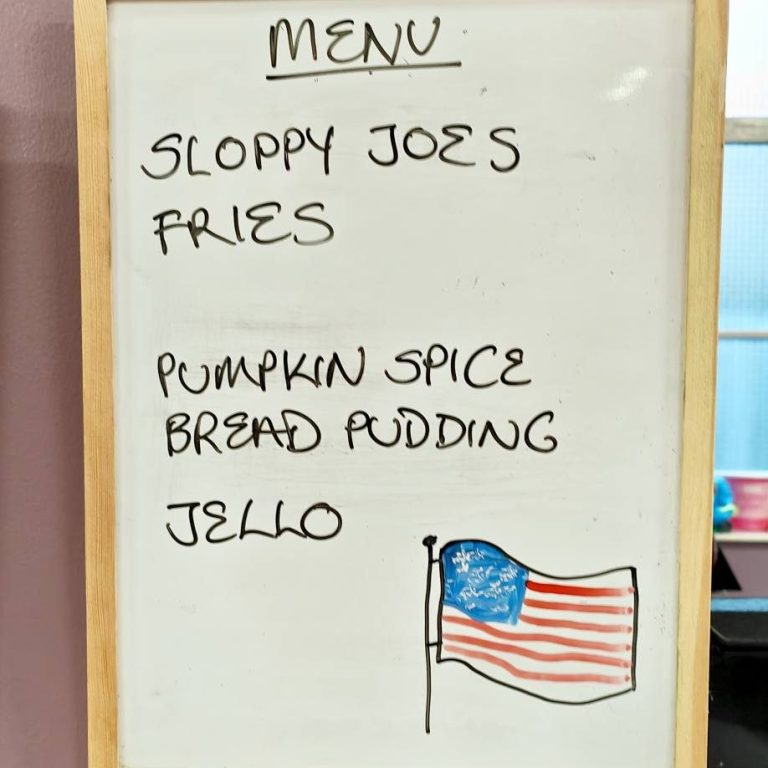 MENU
SLOPPY JOES
FRIES
PUMPKIN SPICE
BREAD PUDDING
JELLO